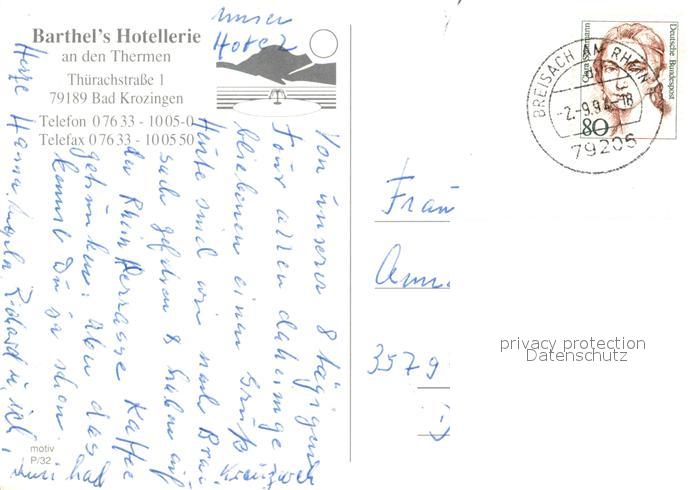 Barthel's Hotellerie
an den Thermen
Thürachstraße 1
79189 Bad Krozingen
Telefon 0 76 33 - 10 05-0
Telefax 0 76 33 - 10 05 50
unser
Hotel
Von unserer 8 tägigen
Tour allen daheimge
bliebenen einen Gruß
Heute sind wir nach Brai
sach gefahren & haben auf
der Rhein Terrasse Kaffee
getrunken. Aber das
kennst Du ja schon
Herze Hanna, Richard u. ich
hab
Kreuzweh
motiv
P/32
Frau
Ann
3579
BREISACH AM RHEIN 1
-2.-9.94-18
79206
80
Clara Schumann
Deutsche Bundespost
privacy protection
Datenschutz